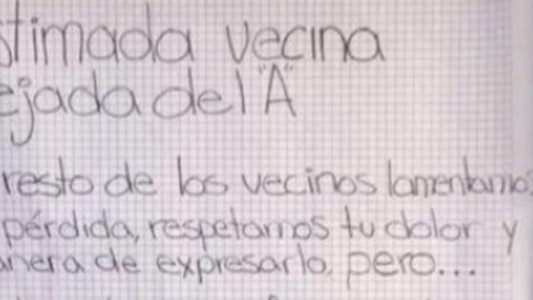 stimada vecina
ejada del "A"
resto de los vecinos lamentamos
pérdida, respetamos tu dolor y
anera de expresarlo, pero...